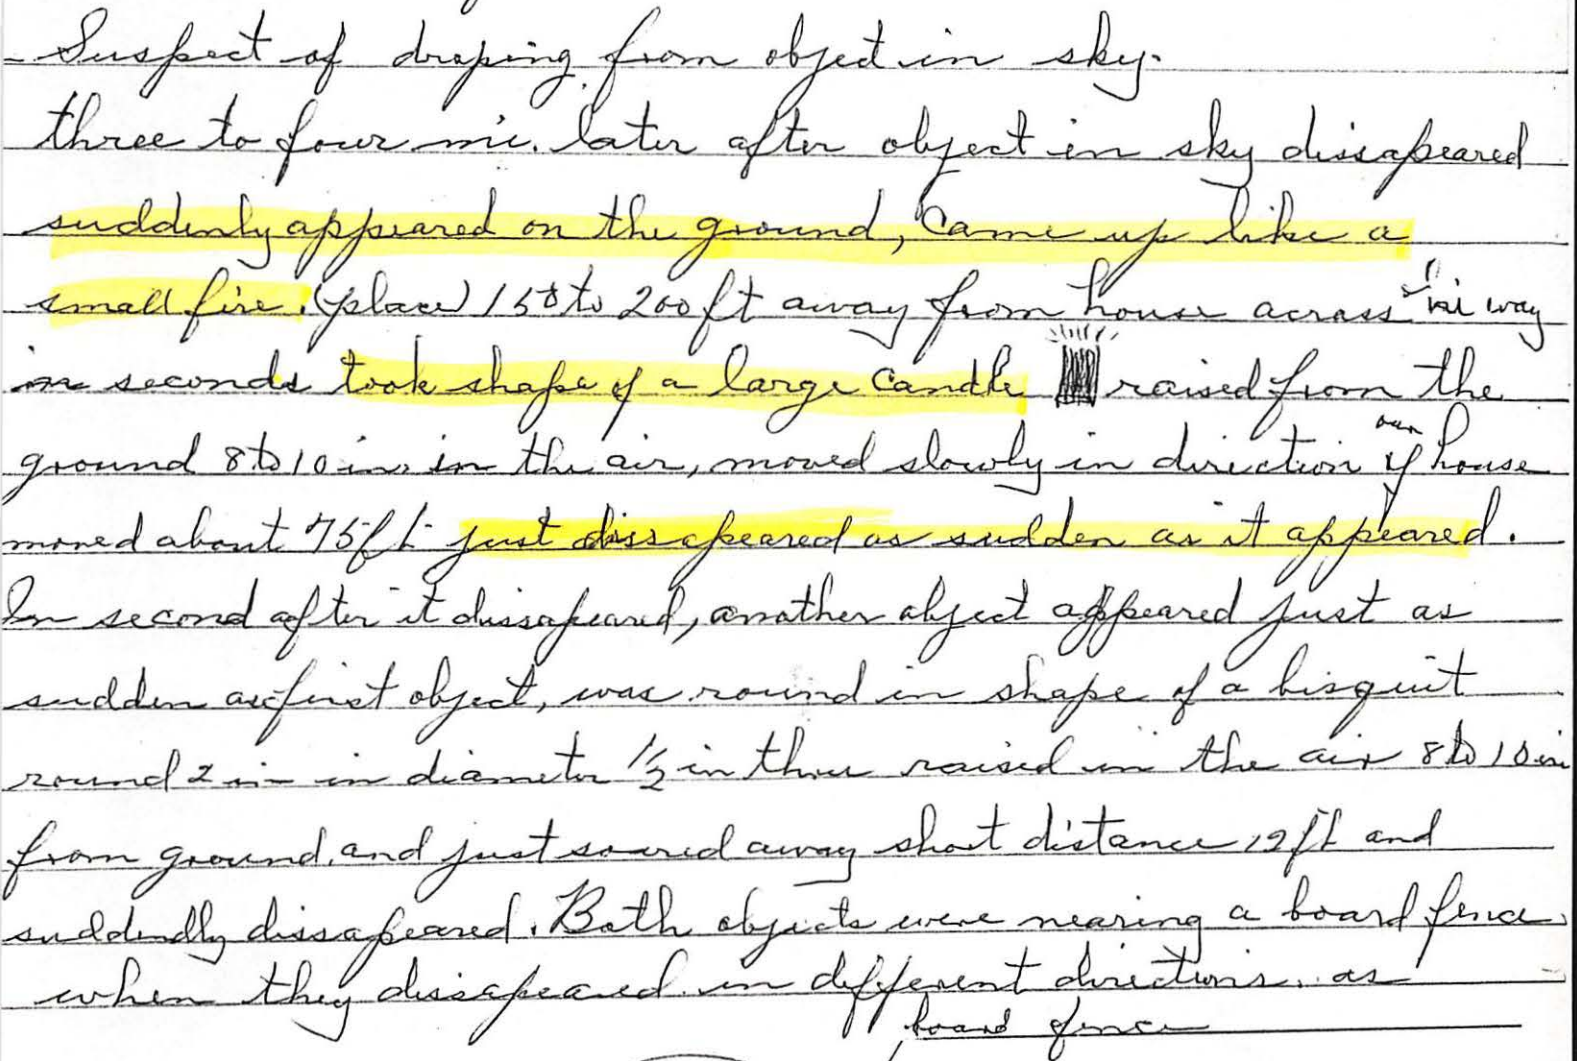 - Suspect of droping from object in sky.
three to four mi. later after object in sky dissapeared
suddenly appeared on the ground, Came up like a
small fire. (place) 150 to 200 ft away from house across hi way
in seconds took shape of a large Candle raised from the
ground 8 to 10 in. in the air, moved slowly in direction of our house
moved about 75 ft just dissapeared as sudden as it appeared.
In second after it dissapeared, another object appeared just as
sudden as first object, was round in shape of a bisquit
round 2 in in diameter 1/2 in thru raised in the air 8 to 10 in
from ground and just soared away short distance 12 ft and
suddendly dissapeared. Both objects were nearing a board fence
when they dissapeared in different directions. as
board fence